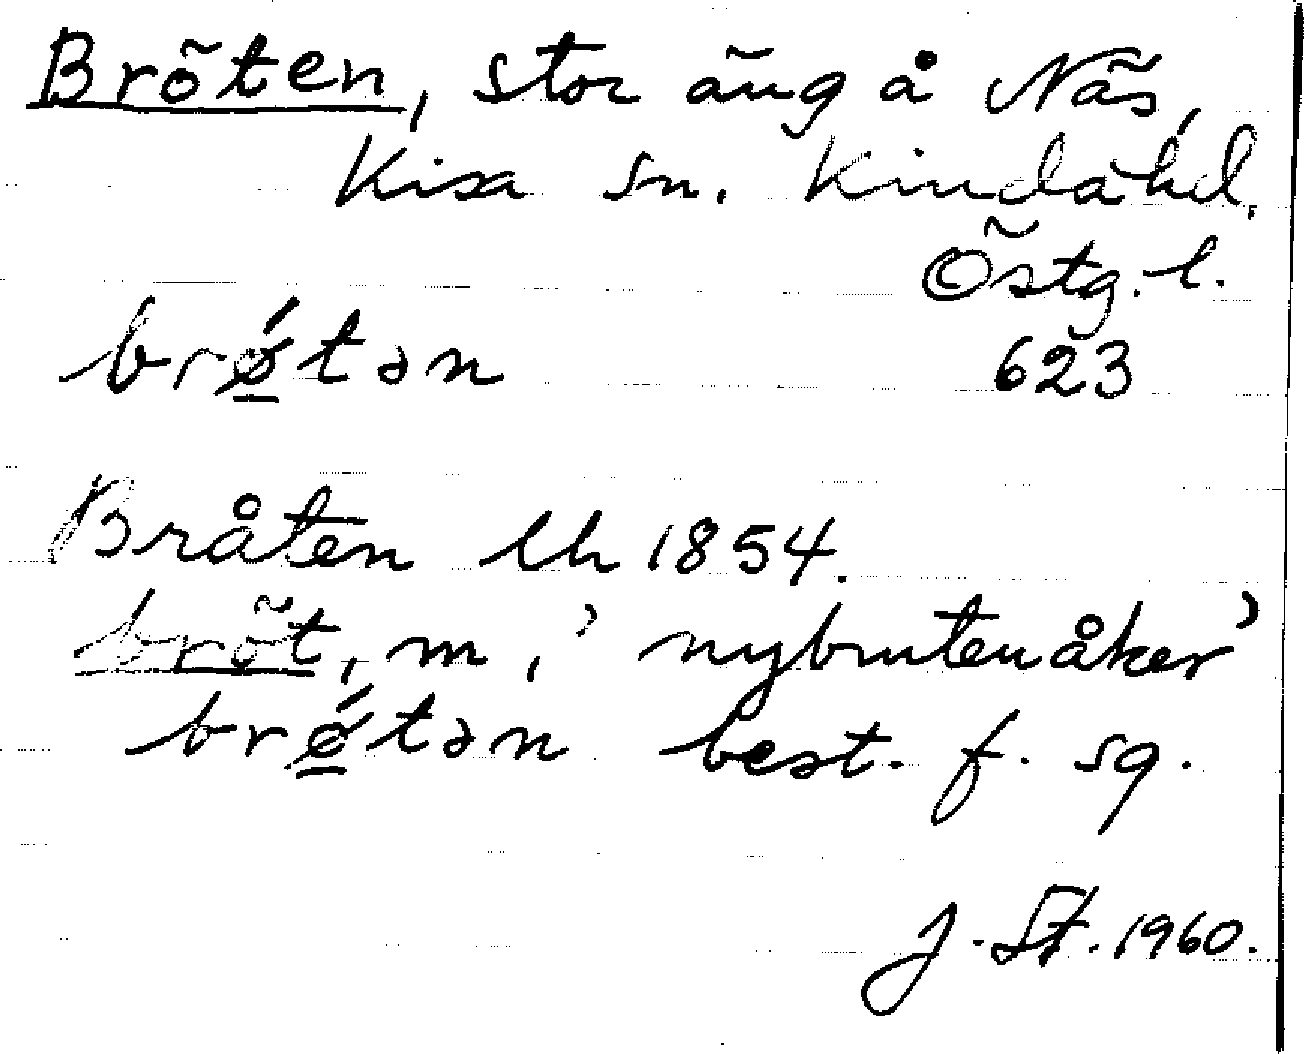 Bröten, stor äng å Näs,
Kisa sn. Kinda hd.
Östg. l.
brǿ̲tən 623
Bråten lh 1854.
bröt, m, 'nybruten åker'
brǿ̲tən best. f. sg.
J. St. 1960.